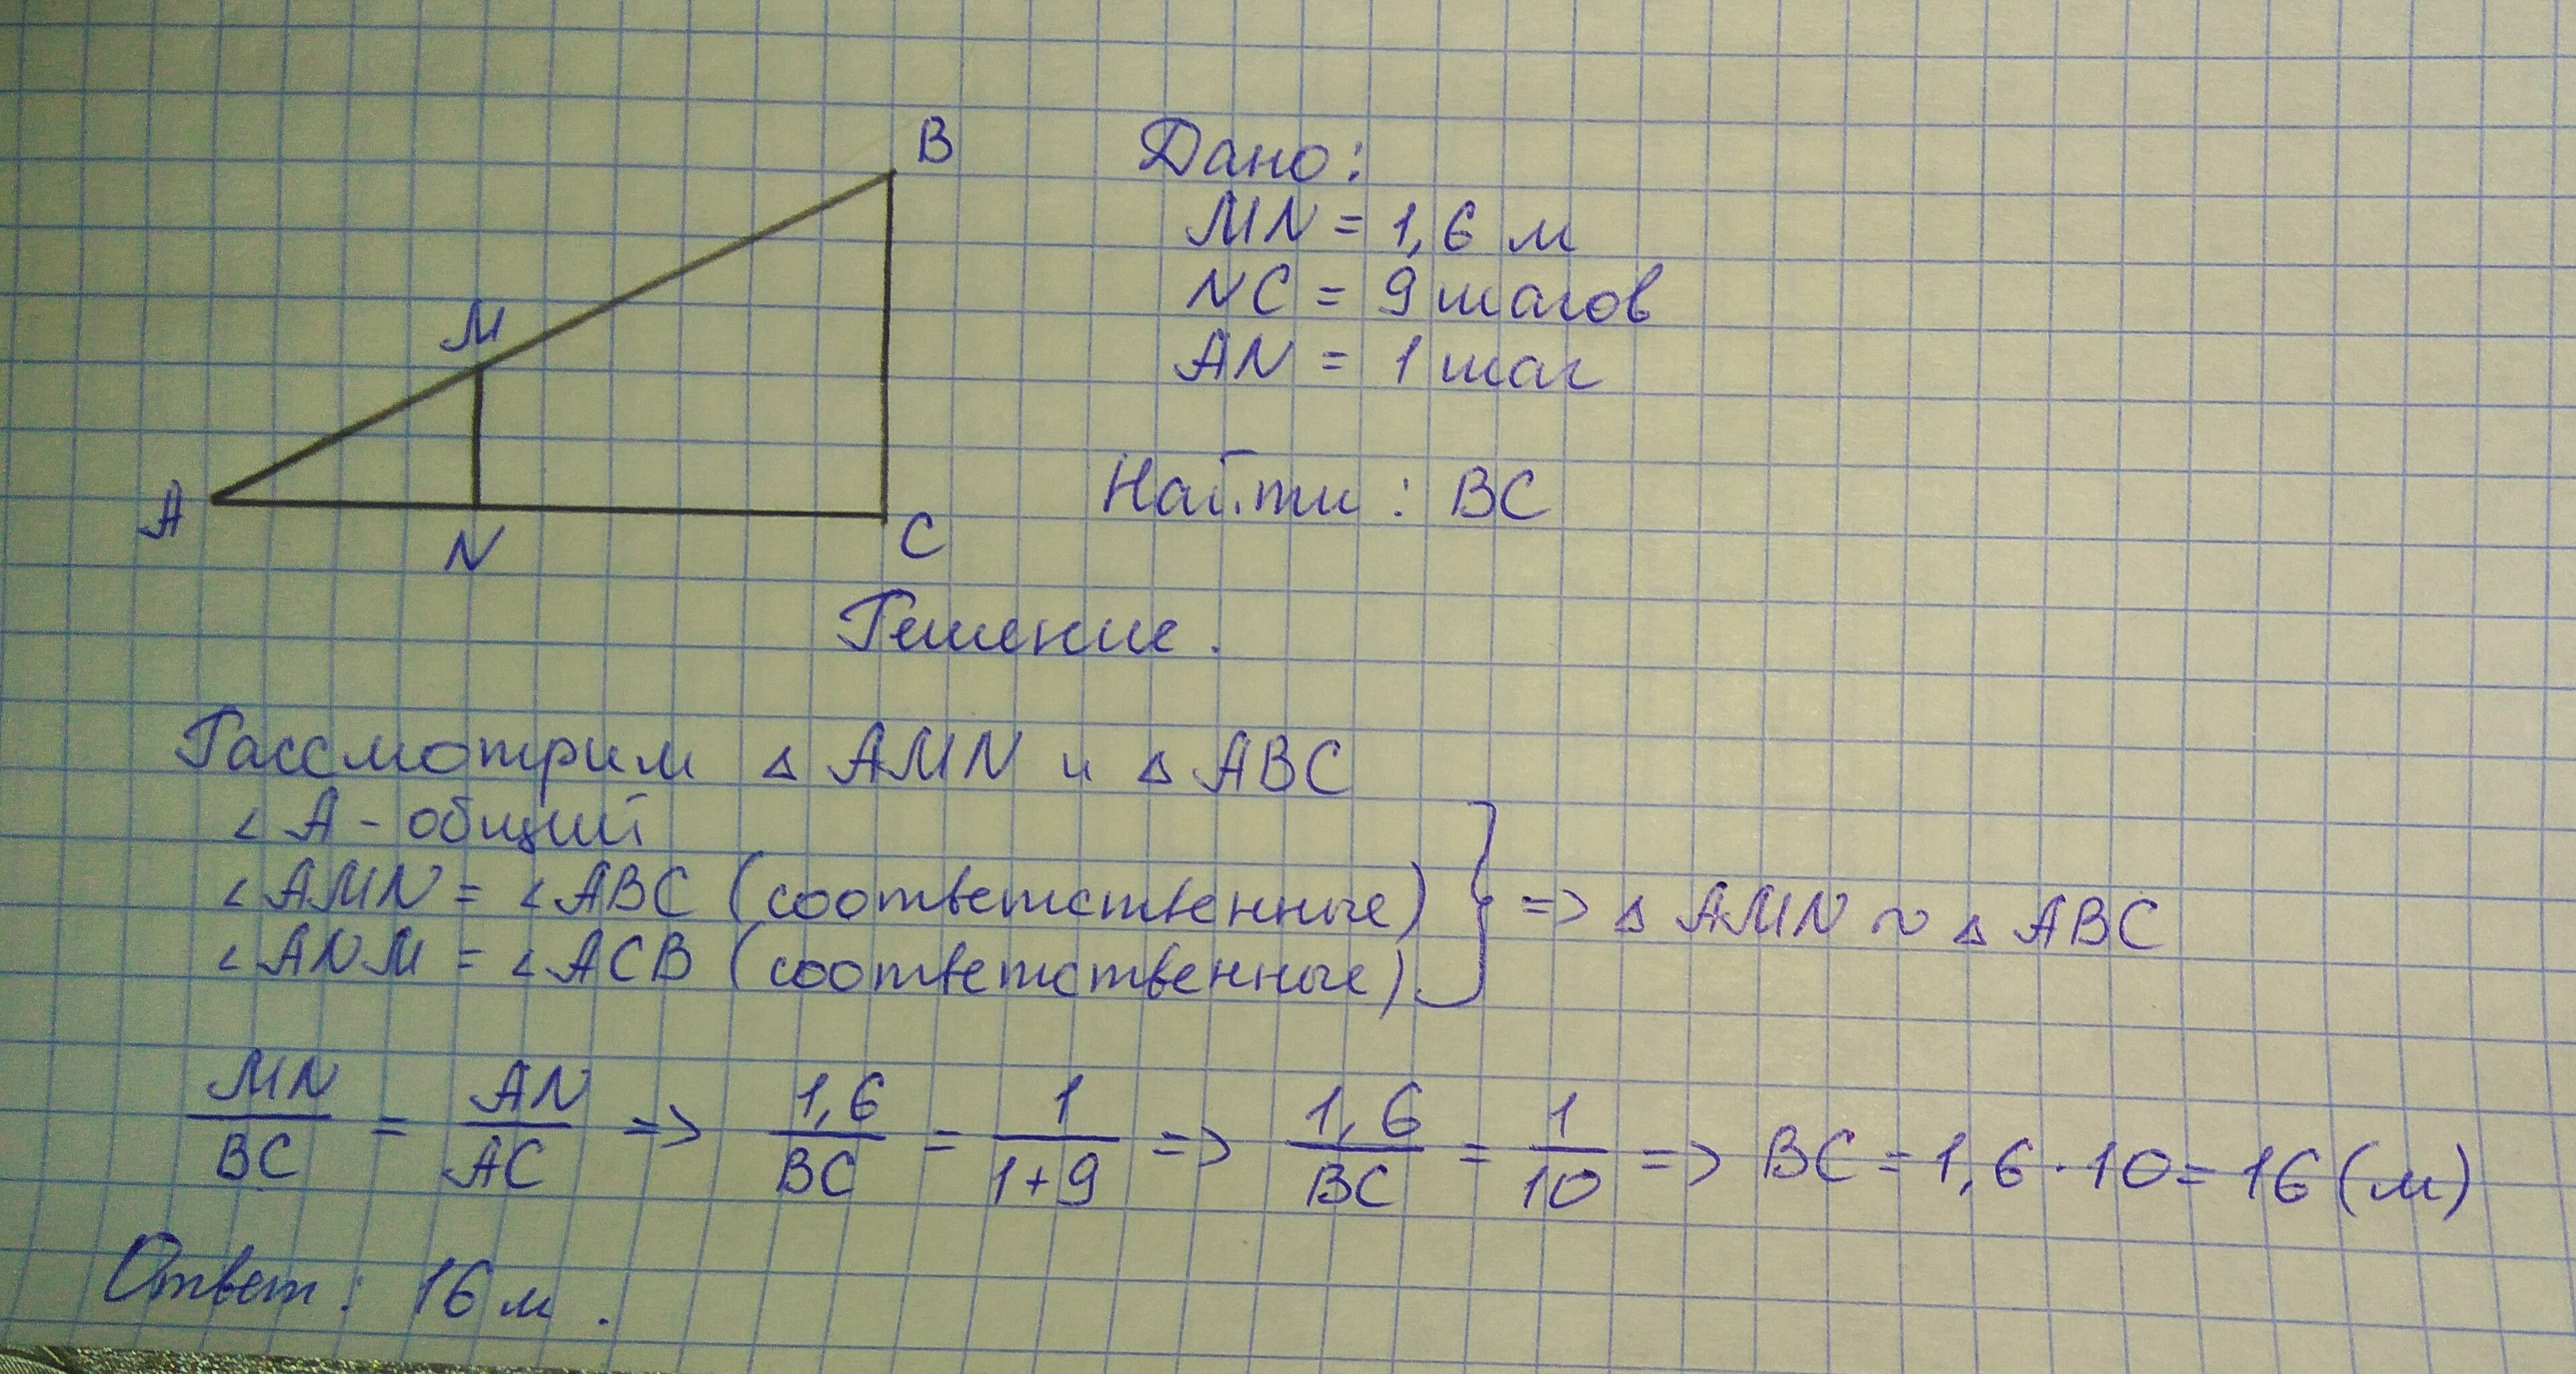 B
M
A
N
C
Дано:
MN = 1,6 м
NC = 9 шагов
AN = 1 шаг
Найти: BC
Решение.
Рассмотрим △ AMN и △ ABC
∠ A - общий
∠ AMN = ∠ ABC (соответственные)
∠ ANM = ∠ ACB (соответственные)
} => △ AMN ~ △ ABC
MN/BC = AN/AC => 1,6/BC = 1/1+9 => 1,6/BC = 1/10 => BC = 1,6 · 10 = 16 (м)
Ответ: 16 м.